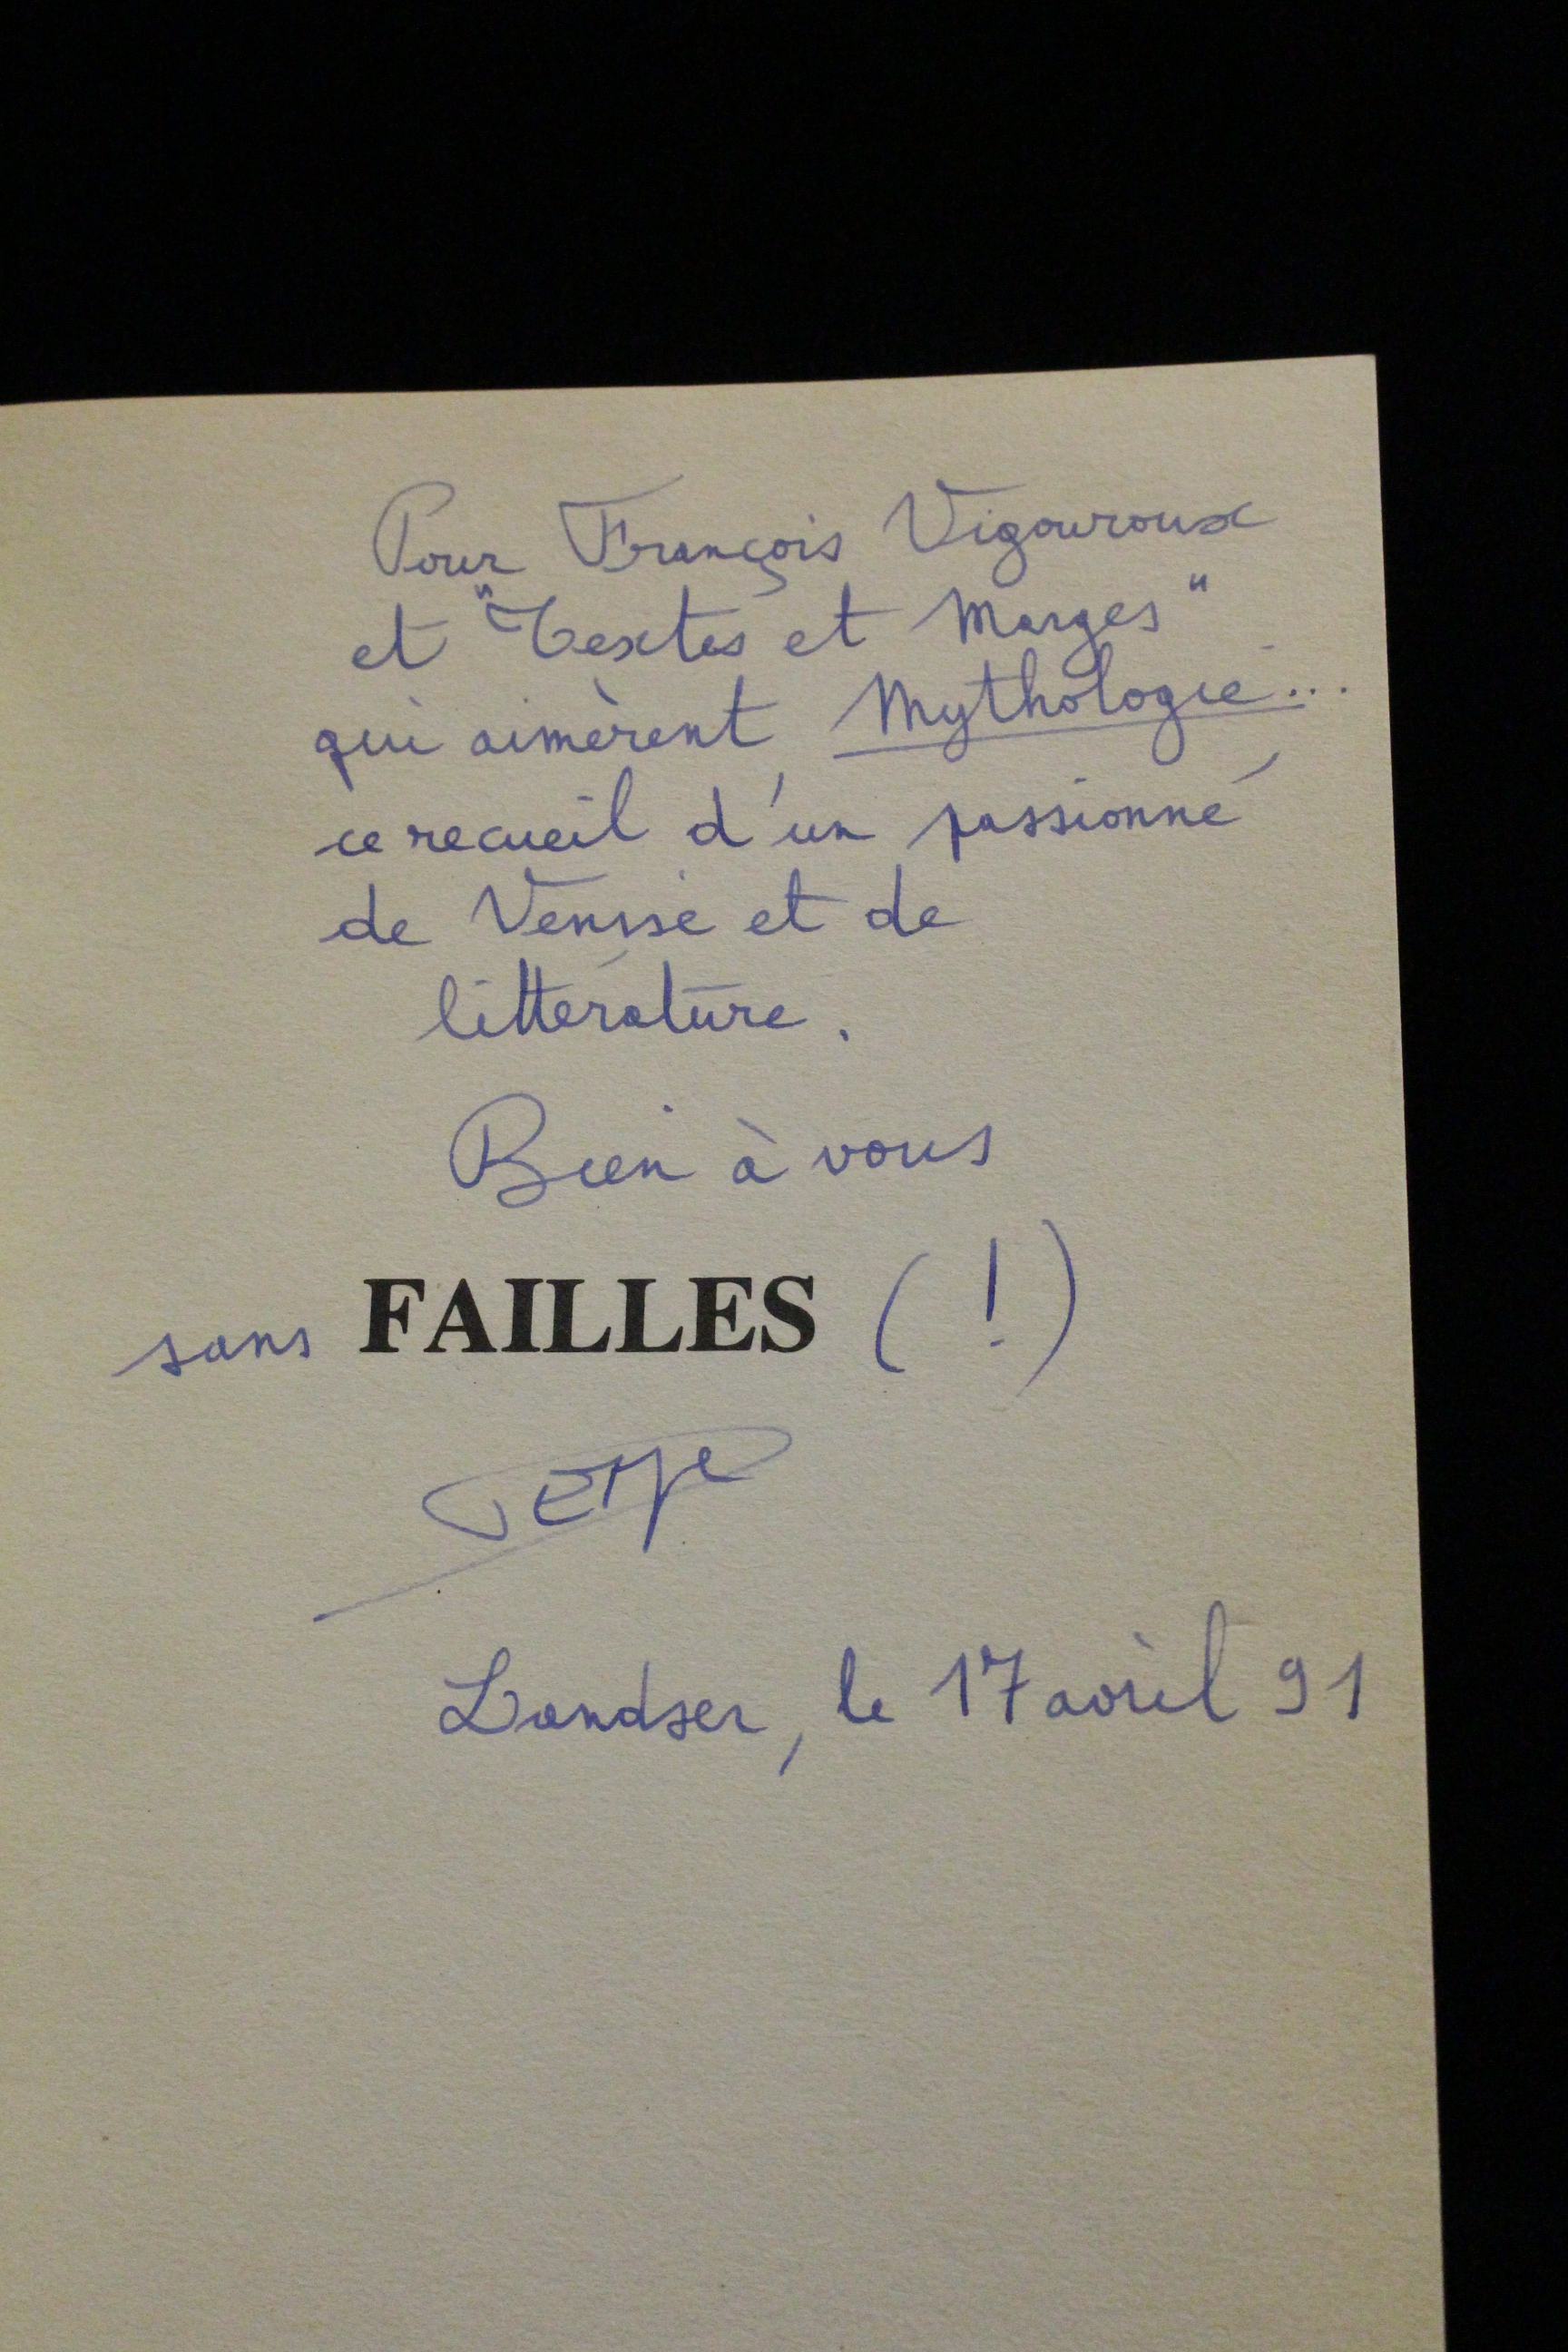 Pour François Vigouroux
et "Textes et Marges"
qui aimèrent Mythologie...
ce recueil d'un passionné
de Venise et de
littérature.
Bien à vous
sans FAILLES (!)
Landser, le 17 avril 91